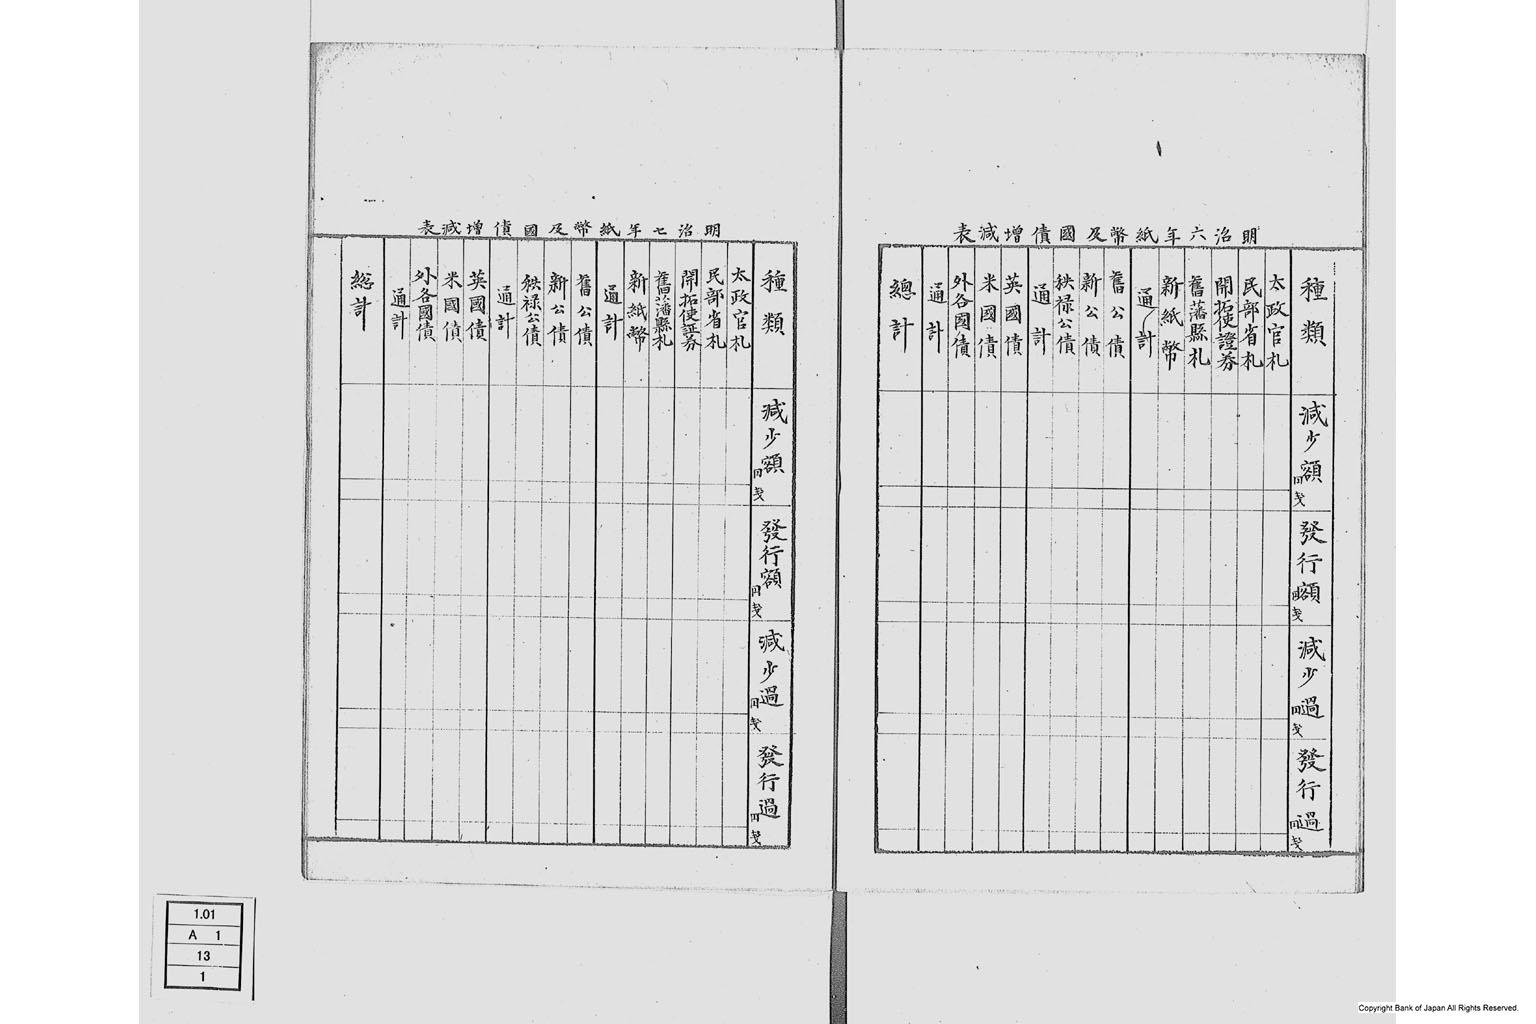 明治六年紙幣及國債增減表
種類
減少額
円
戔
發行額
圓
戔
減少過
円
戔
發行過
円
戔
太政官札
民部省札
開拓使證券
舊藩縣札
新紙幣
通計
舊公債
新公債
秩祿公債
通計
英國債
米國債
外各國債
通計
總計
明治七年紙幣及國債增減表
種類
減少額
円
戔
發行額
円
戔
減少過
円
戔
發行過
円
戔
太政官札
民部省札
開拓使証券
舊藩縣札
新紙幣
通計
舊公債
新公債
秩禄公債
通計
英國債
米國債
外各國債
通計
総計
1.01
A 1
13
1
Copyright Bank of Japan All Rights Reserved.